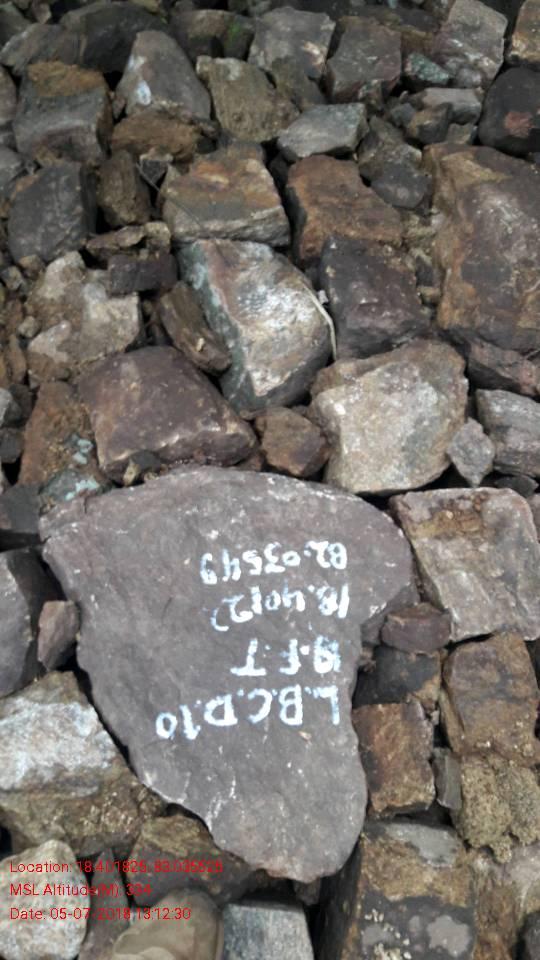 L.B.C.D.10
F.T
18.40122
82.03549
Location: 18.401825, 83.035526
MSL Altitude(M): 334
Date: 05-07-2018 13:12:30